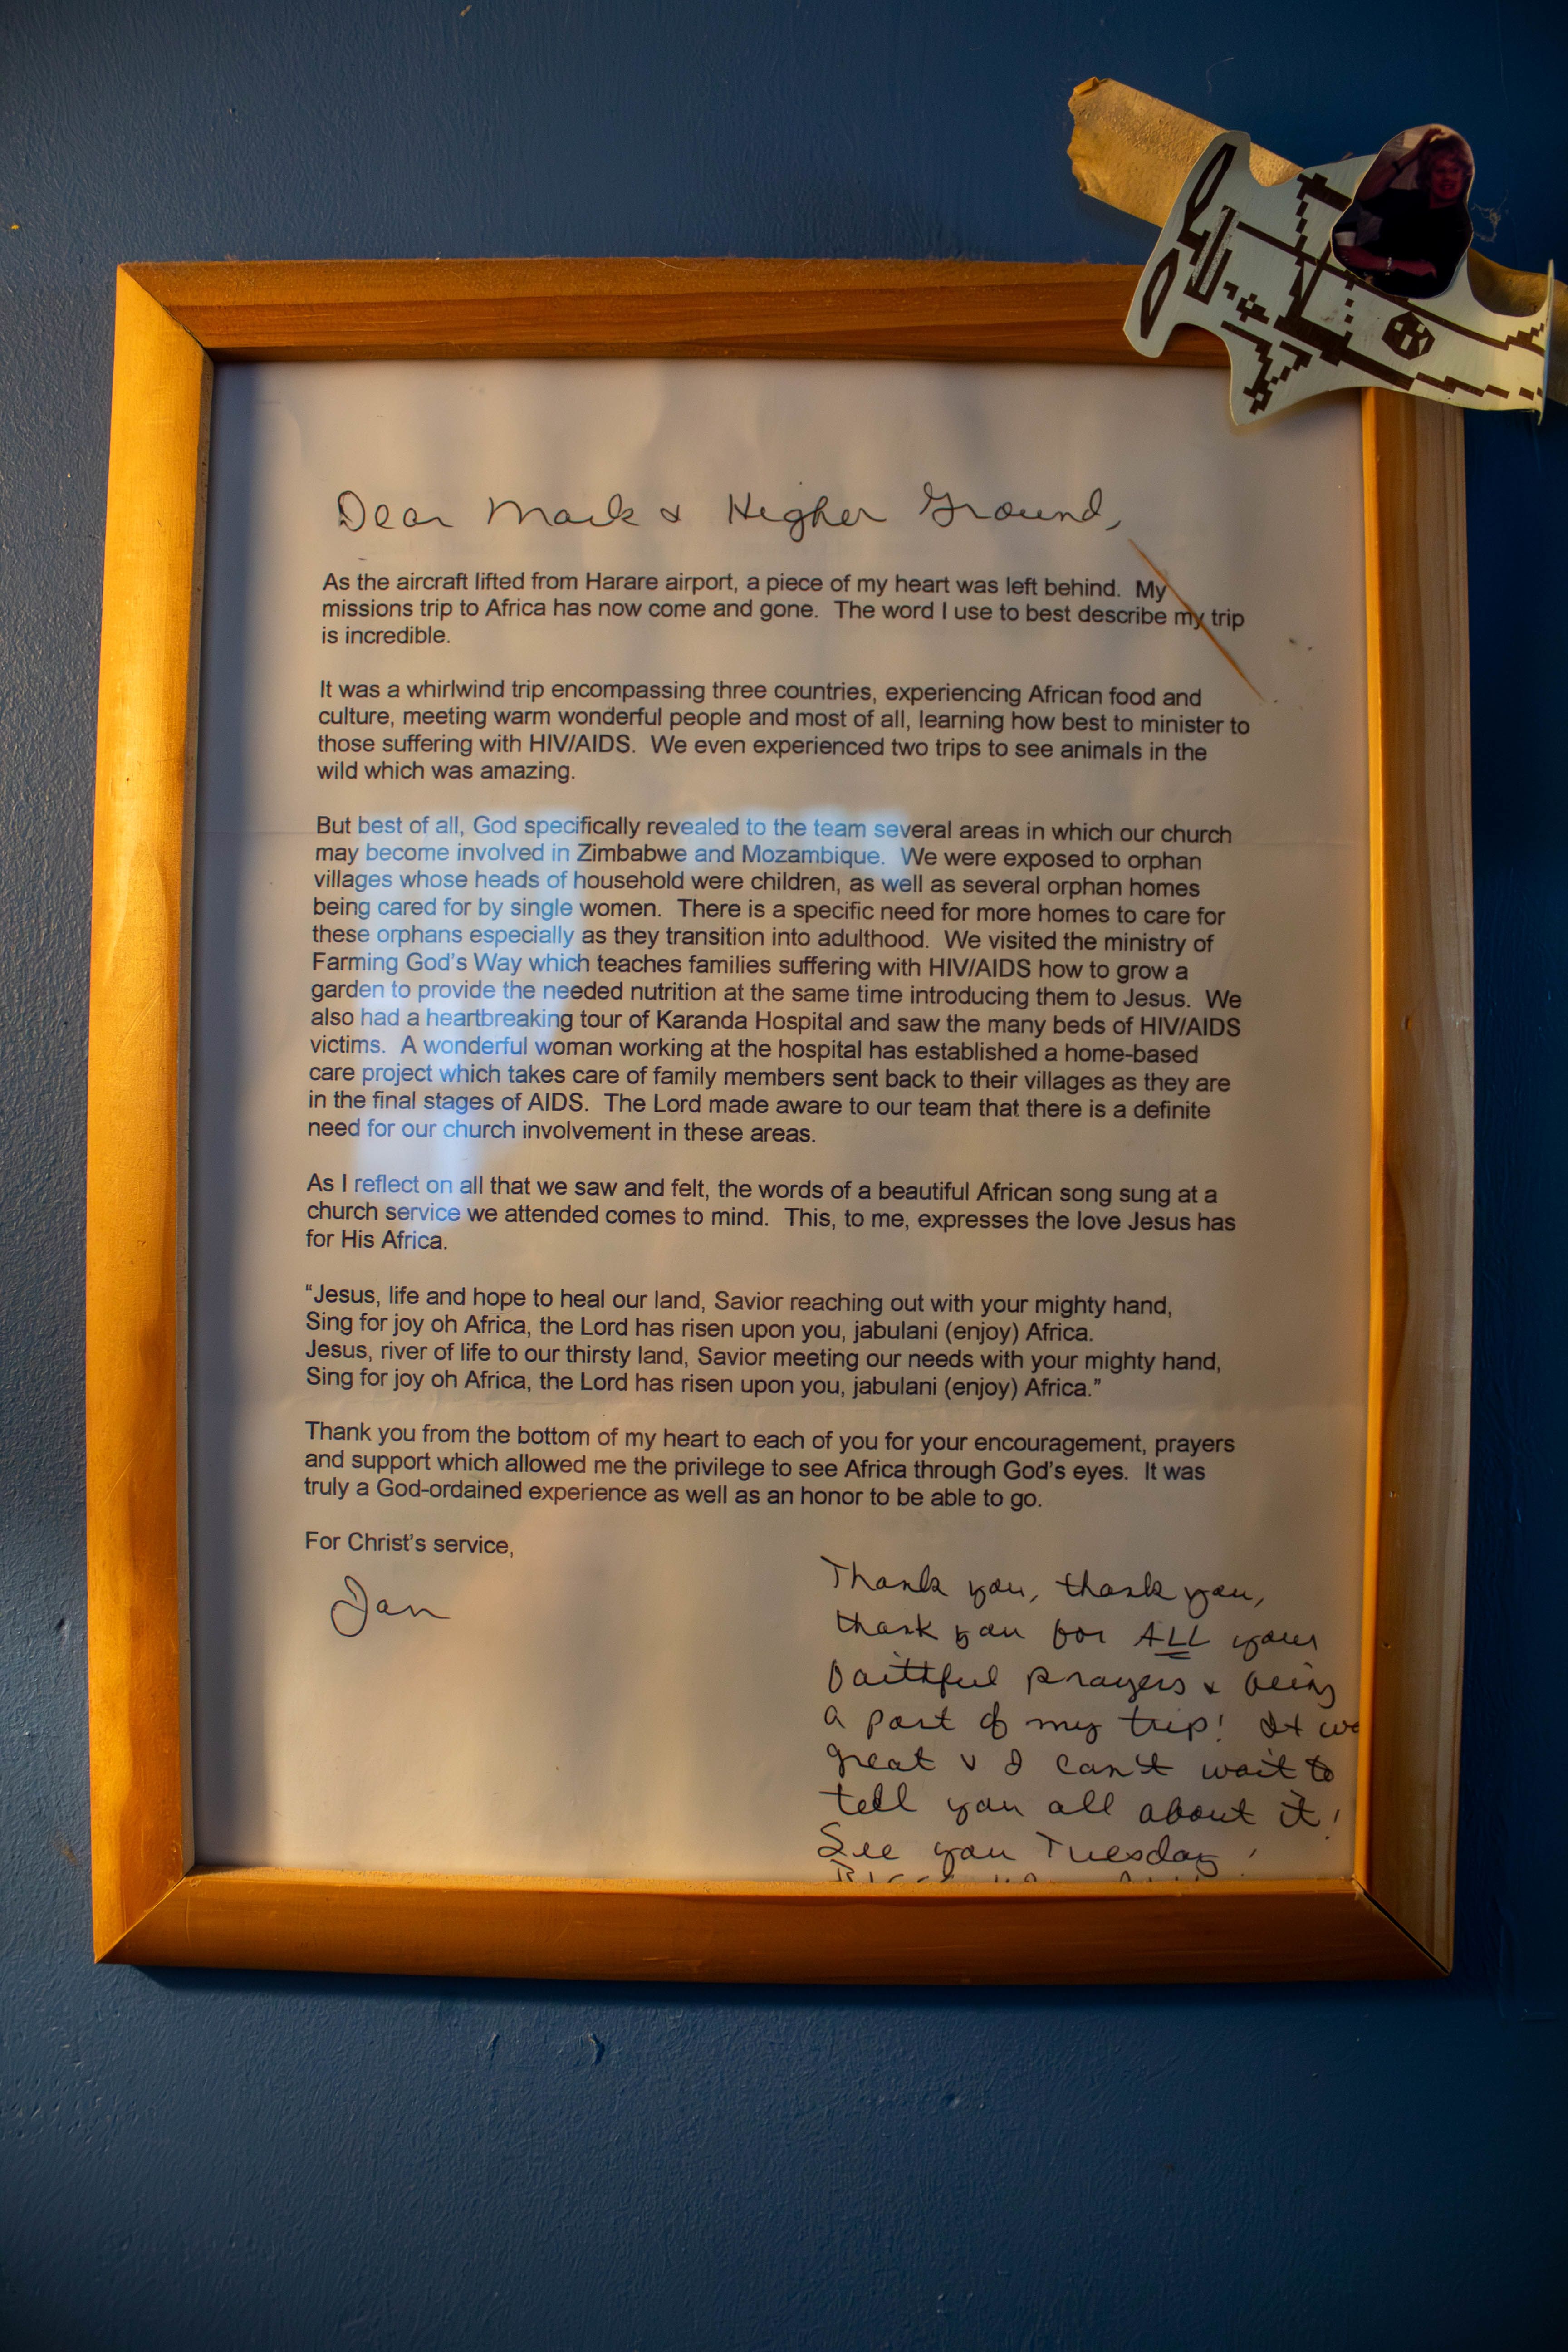 Dear Mark & Higher Ground,
As the aircraft lifted from Harare airport, a piece of my heart was left behind. My
missions trip to Africa has now come and gone. The word I use to best describe my trip
is incredible.
It was a whirlwind trip encompassing three countries, experiencing African food and
culture, meeting warm wonderful people and most of all, learning how best to minister to
those suffering with HIV/AIDS. We even experienced two trips to see animals in the
wild which was amazing.
But best of all, God specifically revealed to the team several areas in which our church
may become involved in Zimbabwe and Mozambique. We were exposed to orphan
villages whose heads of household were children, as well as several orphan homes
being cared for by single women. There is a specific need for more homes to care for
these orphans especially as they transition into adulthood. We visited the ministry of
Farming God's Way which teaches families suffering with HIV/AIDS how to grow a
garden to provide the needed nutrition at the same time introducing them to Jesus. We
also had a heartbreaking tour of Karanda Hospital and saw the many beds of HIV/AIDS
victims. A wonderful woman working at the hospital has established a home-based
care project which takes care of family members sent back to their villages as they are
in the final stages of AIDS. The Lord made aware to our team that there is a definite
need for our church involvement in these areas.
As I reflect on all that we saw and felt, the words of a beautiful African song sung at a
church service we attended comes to mind. This, to me, expresses the love Jesus has
for His Africa.
“Jesus, life and hope to heal our land, Savior reaching out with your mighty hand,
Sing for joy oh Africa, the Lord has risen upon you, jabulani (enjoy) Africa.
Jesus, river of life to our thirsty land, Savior meeting our needs with your mighty hand,
Sing for joy oh Africa, the Lord has risen upon you, jabulani (enjoy) Africa.”
Thank you from the bottom of my heart to each of you for your encouragement, prayers
and support which allowed me the privilege to see Africa through God's eyes. It was
truly a God-ordained experience as well as an honor to be able to go.
For Christ's service,
Jan
Thank you, thank you,
thank you for ALL your
faithful prayers & being
a part of my trip! It
great & I can't wait to
tell you all about it!
See you Tuesday!